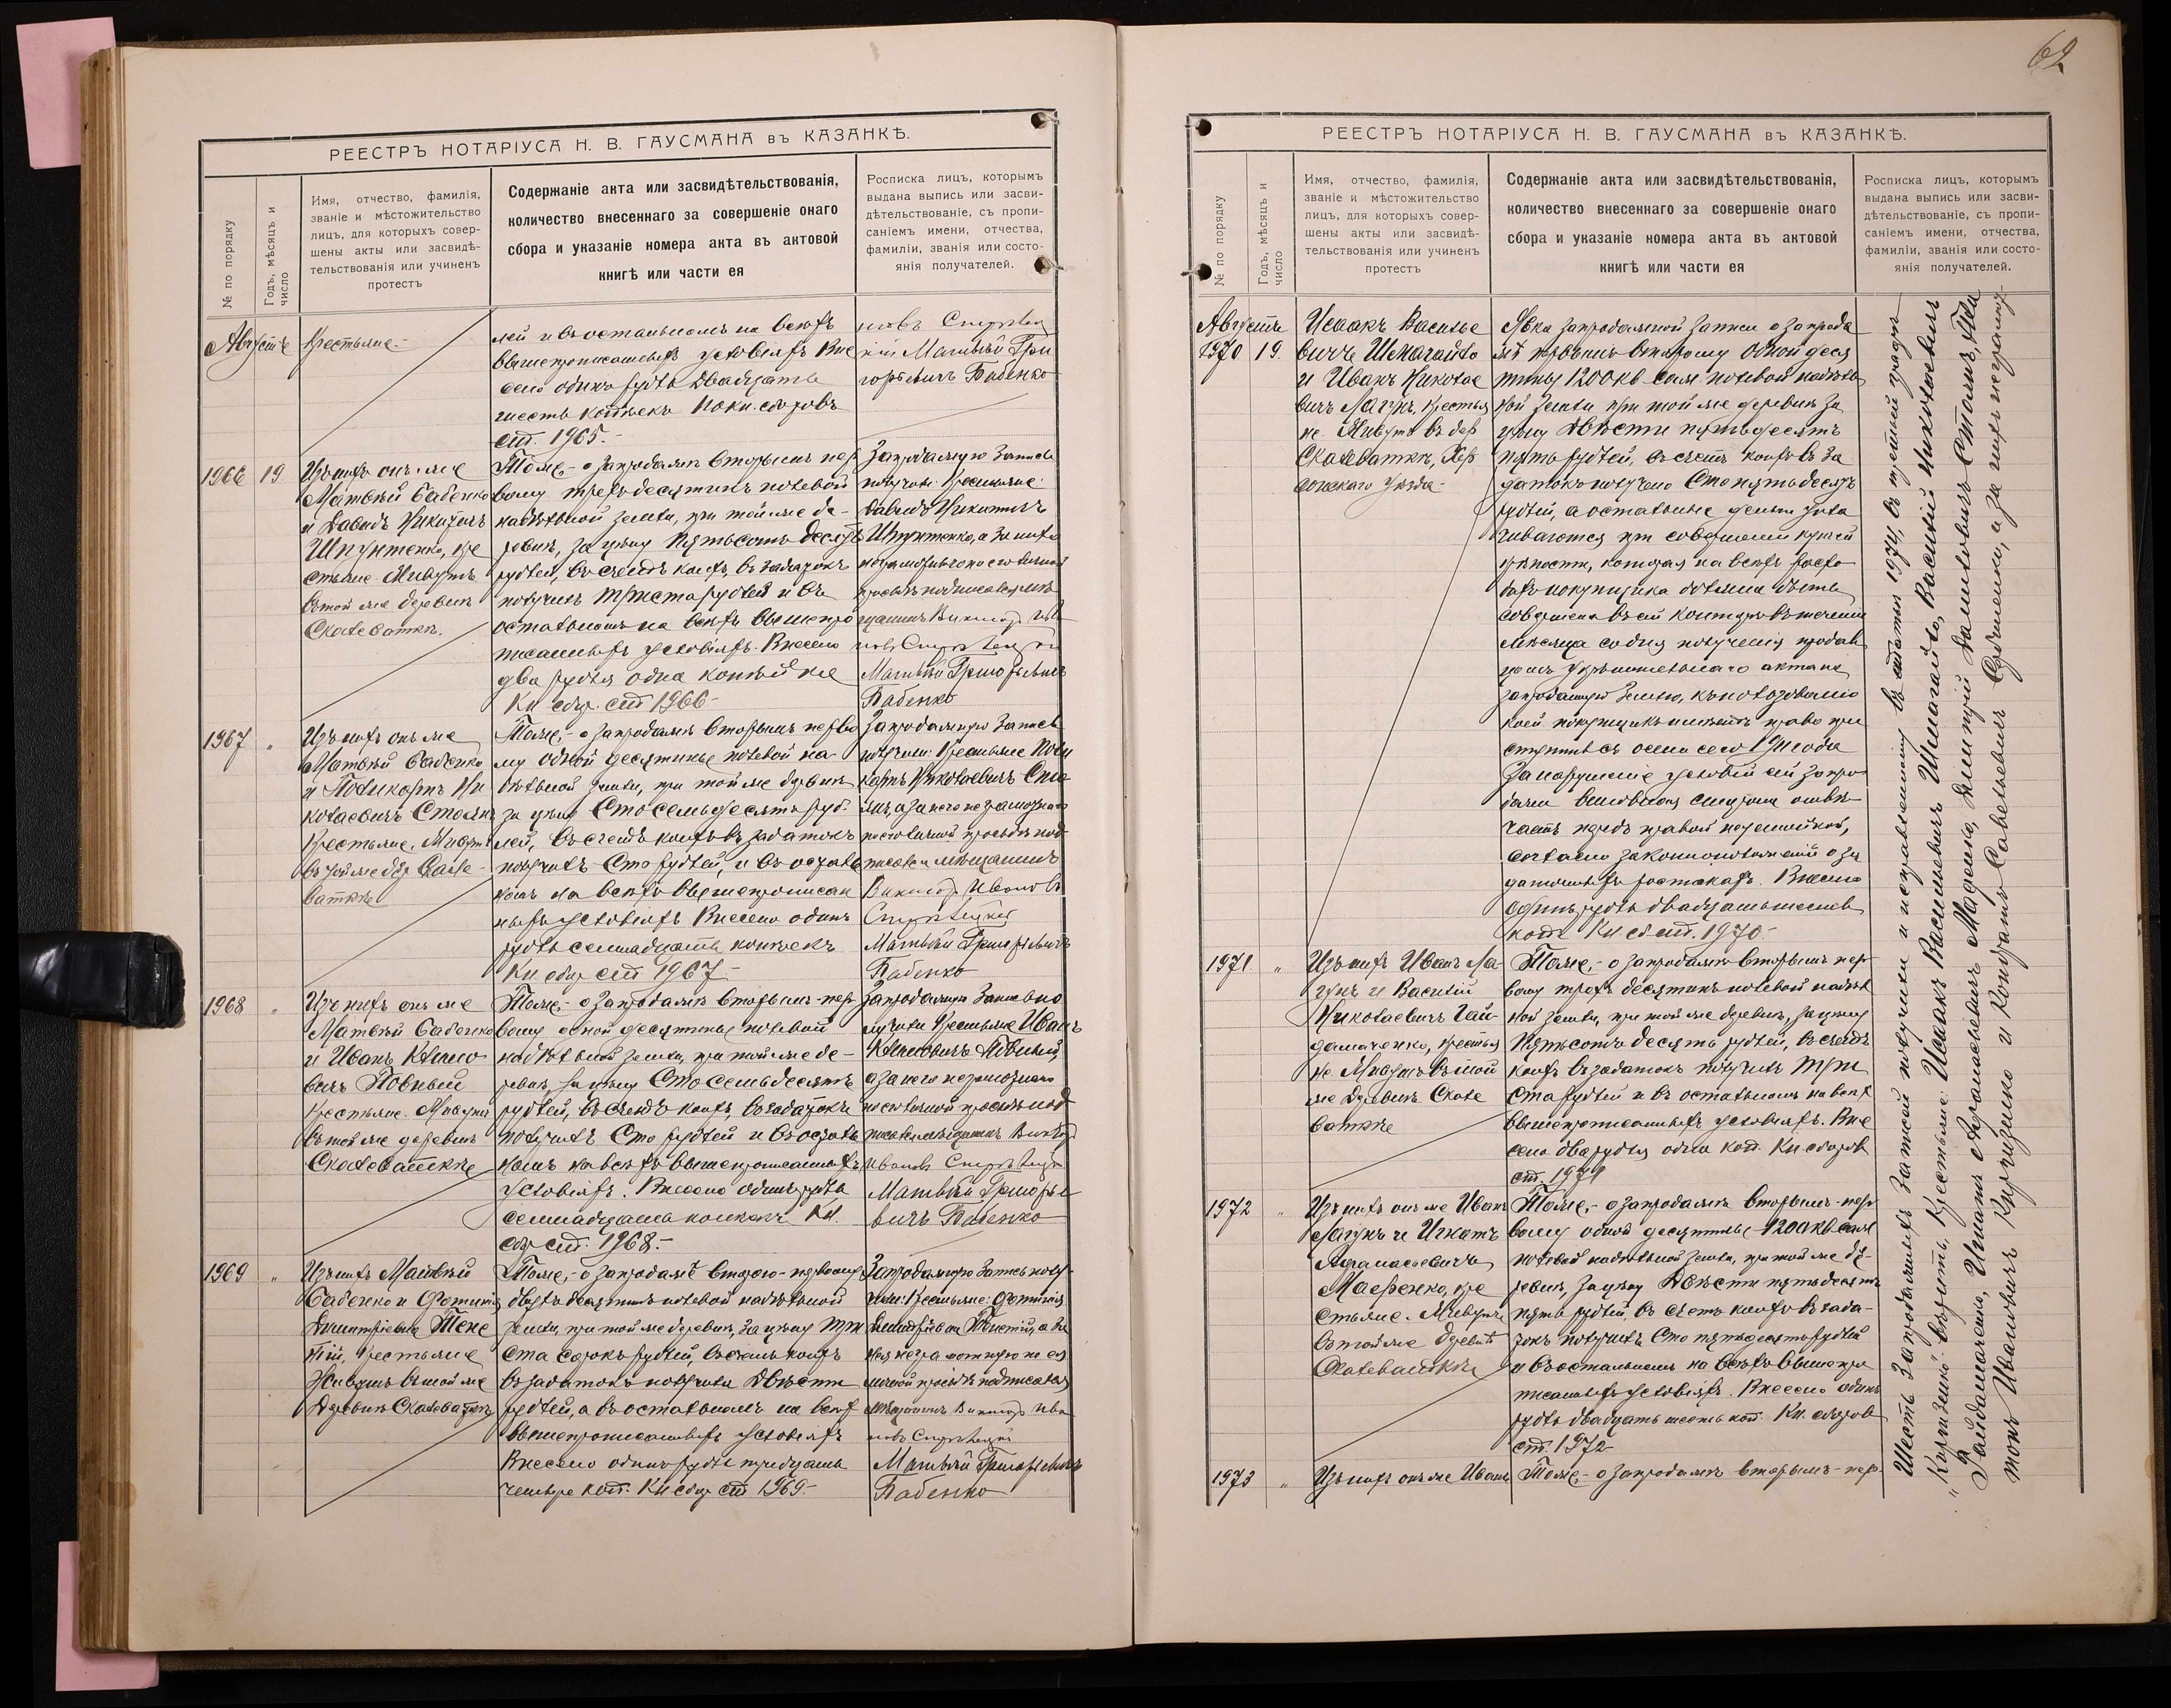 РЕЕСТРЪ НОТАРІУСА Н. В. ГАУСМАНА въ КАЗАНКѢ.
№ по порядку
Годъ, мѣсяцъ и
число
Имя, отчество, фамилія,
званіе и мѣстожительство
лицъ, для которыхъ совер-
шены акты или засвидѣ-
тельствованія или учиненъ
протестъ
Содержаніе акта или засвидѣтельствованія,
количество внесеннаго за совершеніе онаго
сбора и указаніе номера акта въ актовой
книгѣ или части ея
Росписка лицъ, которымъ
выдана выпись или засви-
дѣтельствованіе, съ пропи-
саніемъ имени, отчества,
фамиліи, званія или состо-
янія получателей.
Августъ
Крестьяне.-
лей и въ остальномъ на всѣхъ
вышепрописанныхъ условіяхъ Вне
сено одинъ рубль двадцать
шесть копѣекъ По кн. сборовъ
ст. 1965.-
Матвѣй Гри
горьевичъ Бабенко
1966 19.
Изъ нихъ онъ же
Матвѣй Бабенко
и Давидъ Никитичъ
Шпунтенко, кре
стьяне. Живутъ
въ той же деревнѣ
Скалеваткѣ.
Тоже,- о запродажѣ вторымъ пер
вому трехъ десятинъ полевой
надѣльной земли, при той же де-
ревнѣ, за цѣну Пятьсотъ десять
рублей, въ счетъ коихъ, въ задатокъ
получилъ Триста рублей и въ
остальномъ на всѣхъ вышепро
писанныхъ условіяхъ. Внесено
два рубля одна копѣйка
Кн сбор. ст 1966-
Запродажную запись
получили: Крестьяне:
Давидъ Никитичъ
Шпунтенко, а за него
неграмотнаго по его личной
просьбѣ подписался мѣ
щанинъ Викторъ Ива
новъ
Матвѣй Григорьевичъ
Бабенко
1967 "
Изъ нихъ онъ же
Матвѣй Бабенко
и Поликарпъ Ни
колаевичъ Столяръ
Крестьяне. Живутъ
въ той же дер Скале-
ваткѣ
Тоже,- о запродажѣ вторымъ перво
му одной десятины полевой на-
дѣльной земли, при той же деревнѣ
за цѣну Сто семьдесятъ руб-
лей, въ счетъ коихъ въ задатокъ
получилъ Сто рублей, и въ осталь
номъ на всѣхъ вышепрописан
ныхъ условіяхъ Внесено одинъ
рубль семнадцать копѣекъ
Кн сбор ст 1967-
Запродажную запись
получили: Крестьяне Поли
карпъ Николаевичъ Сто
ляръ, а за него неграмотнаго
по его личной просьбѣ под
писался мѣщанинъ
Викторъ Ивановъ
Матвѣй Григорьевичъ
Бабенко
1968 "
Изъ нихъ онъ же
Матвѣй Бабенко
и Иванъ Климо
вичъ Повный
Крестьяне. Живутъ
въ той же деревнѣ
Скалеваткѣ
Тоже,- о запродажѣ вторымъ пер
вому одной десятины полевой
надѣльной земли, при той же де-
ревнѣ, за цѣну Сто семьдесятъ
рублей, въ счетъ коихъ, въ задатокъ
получилъ Сто рублей и въ осталь
номъ на всѣхъ вышепрописанныхъ
условіяхъ. Внесено одинъ рубль
семнадцать копѣекъ Кн.
сбор ст. 1968.-
Запродажную запись по
лучили Крестьяне Иванъ
Климовичъ Повный
а за него неграмотнаго
по его личной просьбѣ под
писался мѣщанинъ Викторъ
Ивановъ
Матвѣй Григорье
вичъ Бабенко
1969 "
Изъ нихъ Матвѣй
Бабенко и Фотинія
Дмитріевна
Крестьяне
Живутъ въ той же
деревнѣ Скалеваткѣ
Тоже,- о запродажѣ второю- первому
двухъ десятинъ полевой надѣльной
земли, при той же деревнѣ, за цѣну Три
ста сорокъ рублей, въ счетъ коихъ
въ задатокъ получила Двѣсти
рублей, а въ остальномъ на всѣхъ
вышепрописанныхъ условіяхъ
Внесено одинъ рубль тридцать
четыре коп. Кн сбор ст 1969.-
Запродажную запись полу-
чили: Крестьяне: Фотинія
Дмитріевна а за
нея неграмотную по ея
личной просьбѣ подписался
мѣщанинъ Викторъ Ива
новъ
Матвѣй Григорьевичъ
Бабенко
62
РЕЕСТРЪ НОТАРІУСА Н. В. ГАУСМАНА въ КАЗАНКѢ.
№ по порядку
Годъ, мѣсяцъ и
число
Имя, отчество, фамилія,
званіе и мѣстожительство
лицъ, для которыхъ совер-
шены акты или засвидѣ-
тельствованія или учиненъ
протестъ
Содержаніе акта или засвидѣтельствованія,
количество внесеннаго за совершеніе онаго
сбора и указаніе номера акта въ актовой
книгѣ или части ея
Росписка лицъ, которымъ
выдана выпись или засви-
дѣтельствованіе, съ пропи-
саніемъ имени, отчества,
фамиліи, званія или состо-
янія получателей.
Августъ
1970 19.
Исаакъ Василье
вичъ Шмагайло
и Иванъ Николае
вичъ Лагунъ, крестья
не. Живутъ въ дер
Скалеваткѣ, Хер
сонскаго уѣзда-
Явка запродажной записи о запрода
жѣ первымъ второму одной деся
тины 1200 кв саж. полевой надѣль
ной земли при той же деревнѣ за
цѣну Двѣсти пятьдесятъ
пять рублей, въ счетъ коихъ въ за
датокъ получено Сто пятьдесятъ
рублей, а остальные деньги упла
чиваются при совершеніи купчей
крѣпости, которая на всѣхъ расхо
дахъ покупщика должна быть
совершена въ сей конторѣ въ теченіи
мѣсяца со дня полученія продав
цомъ укрѣпительнаго акта на
запроданную землю, къ пользованію
коей покупщикъ имѣетъ право при
ступить съ осени сего 1911 года
За нарушеніе условій сей запро
дажи виновная сторона отвѣ-
чаетъ передъ правой неустойкой,
согласно законоположеній о за
даточныхъ роспискахъ. Внесено
одинъ рубль двадцать шесть
коп. Кн. сб ст. 1970-
1971 "
Изъ нихъ Иванъ Ла-
гунъ и Василій
Николаевичъ Гай-
дамаченко, крестья
не Живутъ въ той
же деревнѣ Скале
ваткѣ
Тоже,- о запродажѣ вторымъ пер-
вому трехъ десятинъ полевой надѣль
ной земли, при той же деревнѣ, за цѣну
Пятьсотъ десять рублей, въ счетъ
коихъ въ задатокъ получилъ Три
ста рублей и въ остальномъ на всѣхъ
вышепрописанныхъ условіяхъ. Вне
сено два рубля одна коп. Кн сборовъ
ст. 1971
1972 "
Изъ нихъ онъ же Иванъ
Лагунъ и Игнатъ
Афанасьевичъ
Маценко, кре
стьяне. Живутъ
въ той же деревнѣ
Скалеваткѣ
Тоже,- о запродажѣ вторымъ- пер-
вому одной десятины 1200 кв саж
полевой надѣльной земли, при той же де-
ревнѣ, за цѣну Двѣсти пятьдесятъ
пять рублей, въ счетъ коихъ въ зада-
токъ получилъ Сто пятьдесятъ рублей
и въ остальномъ на всѣхъ вышепро
писанныхъ условіяхъ. Внесено одинъ
рубль двадцать шесть коп. Кн. сборовъ
ст. 1972-
1973 "
Изъ нихъ онъ же Иванъ
Тоже,- о запродажѣ вторымъ- пер-
Шесть запродажныхъ записей получили и исправленному въ статьѣ 1974, въ третьей графѣ
"Киризенко" вѣрить, Крестьяне: Исаакъ Васильевичъ Шмагайло, Василій Николаевичъ
Гайдамаченко, Игнатъ Афанасьевичъ Маценко, Дмитрій Даниловичъ Столяръ, Пла
тонъ Ивановичъ Киризенко и Кондратъ Савельевичъ Ефименко, а за нихъ неграмот-